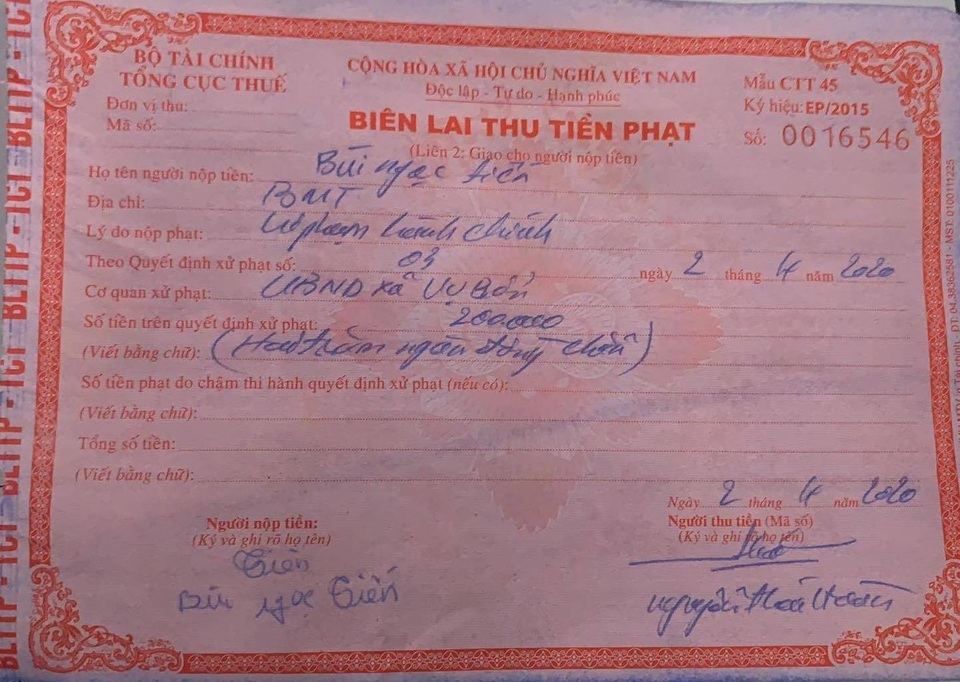 BỘ TÀI CHÍNH
TỔNG CỤC THUẾ
Đơn vị thu:
Mã số:
CỘNG HÒA XÃ HỘI CHỦ NGHĨA VIỆT NAM
Độc lập - Tự do - Hạnh phúc
BIÊN LAI THU TIỀN PHẠT
(Liên 2: Giao cho người nộp tiền)
Mẫu CTT 45
Ký hiệu: EP/2015
Số: 0016546
Họ tên người nộp tiền: Bùi ngọc Tiến
Địa chỉ: BMT
Lý do nộp phạt: Vi phạm hành chính
Theo Quyết định xử phạt số: 03 ngày 2 tháng 4 năm 2020
Cơ quan xử phạt: UBND xã Vụ Bổn
Số tiền trên quyết định xử phạt: 200.000
(Viết bằng chữ): (Hai trăm ngàn đồng chẵn)
Số tiền phạt do chậm thi hành quyết định xử phạt (nếu có):
(Viết bằng chữ):
Tổng số tiền:
(Viết bằng chữ):
Ngày 2 tháng 4 năm 2020
Người nộp tiền:
(Ký và ghi rõ họ tên)
Tiến
Bùi ngọc Tiến
Người thu tiền (Mã số)
(Ký và ghi rõ họ tên)
nguyễn
BLTTP - TCT - BLTTP - TCT - BLTTP - TCT
ĐT: 04.38362581 - MST: 0100111225